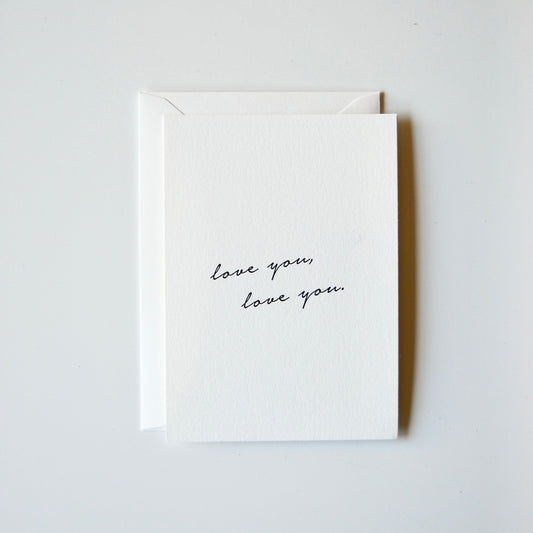 love you,
love you.